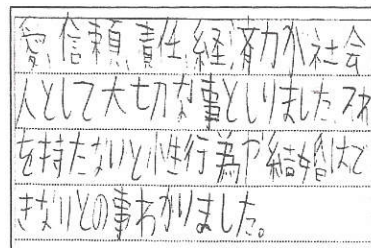 愛、信頼、責任、経済力が社会
人として大切な事としりました。それ
を持たないと性行為や結婚はで
きないとの事わかりました。